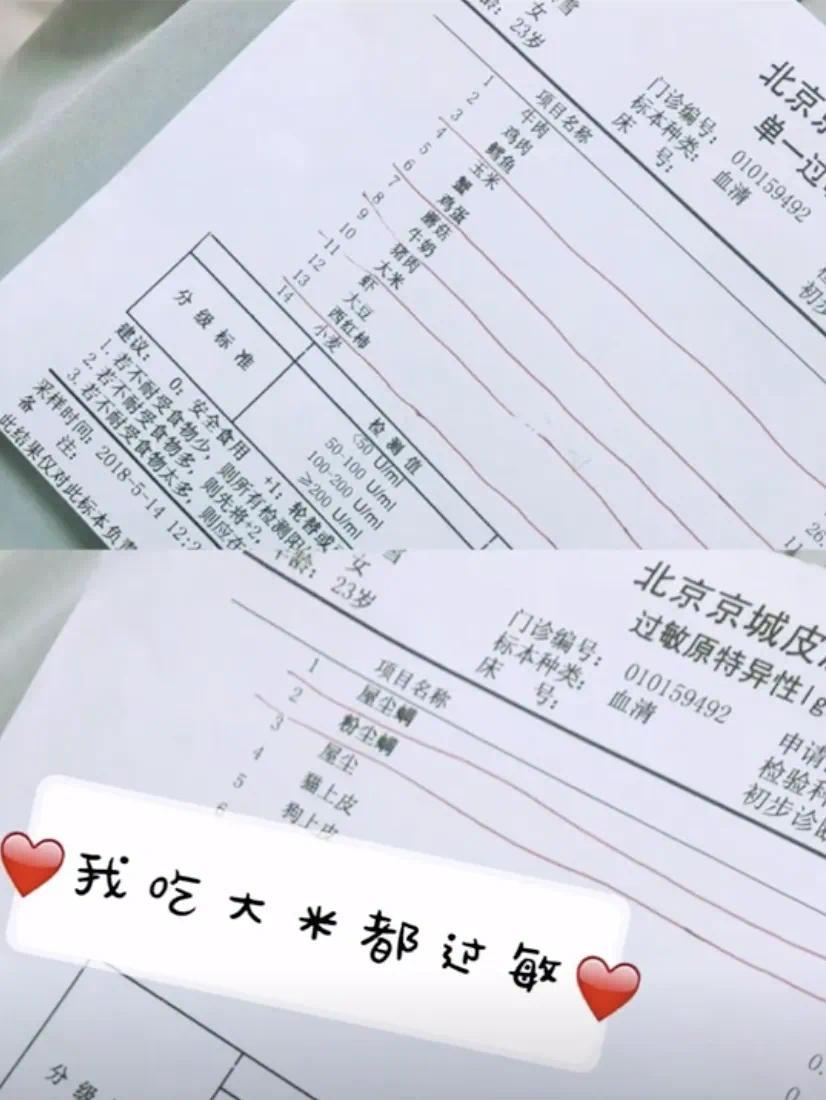 雪
女
龄：23岁
北京京
单一过
门诊编号：010159492
标本种类：血清
床 号：
初步
项目名称
1 牛肉
2 鸡肉
3 鳕鱼
4 玉米
5 蟹
6 鸡蛋
7 蘑菇
8 牛奶
9 猪肉
10 大米
11 虾
12 大豆
13 西红柿
14 小麦
26.
分级标准
检测值
<50 U/ml
50-100 U/ml
100-200 U/ml
≥200 U/ml
建议： 0：安全食用 +1：轮替或
1. 若不耐受食物少，则所有检测阳
2. 若不耐受食物多，则先将+2、
3. 若不耐受食物太多，则应在
采样时间：2018-5-14 12:2
备 注：
此结果仅对此标本负责
雪
女
年龄：23岁
北京京城皮
过敏原特异性Ig
门诊编号：010159492
标本种类：血清
床 号：
申请
检验科
初步诊断
项目名称
1 屋尘螨
2 粉尘螨
3 屋尘
4 猫上皮
5 狗上皮
6
我吃大米都过敏
分级
0.
0.